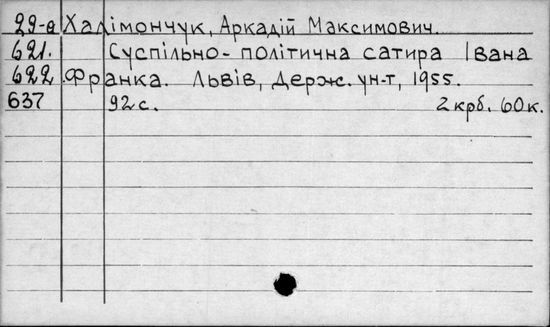 29-а Халімончук, Аркадій Максимович.
621. Суспільно-політична сатира Івана
622 Франка. Львів, Держ. ун-т, 1955.
637 92 с. 2 крб. 60 к.